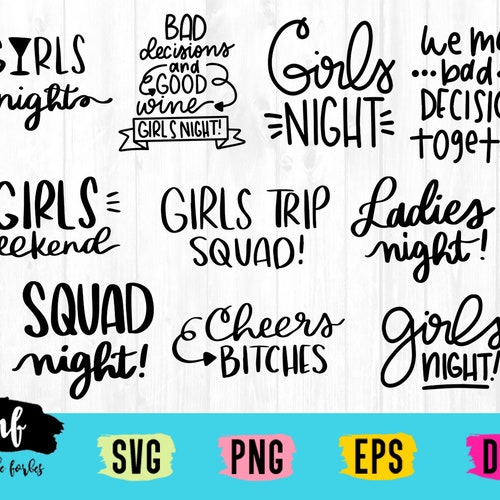 GIRLS
night
BAD
decisions
and
GOOD
wine
GIRLS NIGHT!
Girls
NIGHT
we ma
...bad
DECISIO
togeth
GIRLS
eekend
GIRLS TRIP
SQUAD!
Ladies
night!
SQUAD
night!
Cheers
BITCHES
girls
NIGHT!
nf
e forbes
SVG
PNG
EPS
D